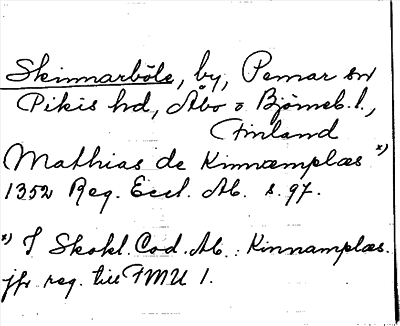 Skinnarböle, by, Pemar sn
Pikis hd, Åbo o Björneb. l.,
Finland
Mathias de Kinnæmplæs *)
1352 Reg. Eccl. Ab. s. 97.
*) I Skokl. Cod. Ab.: Kinnamplæs.
jfr reg. till FMU 1.